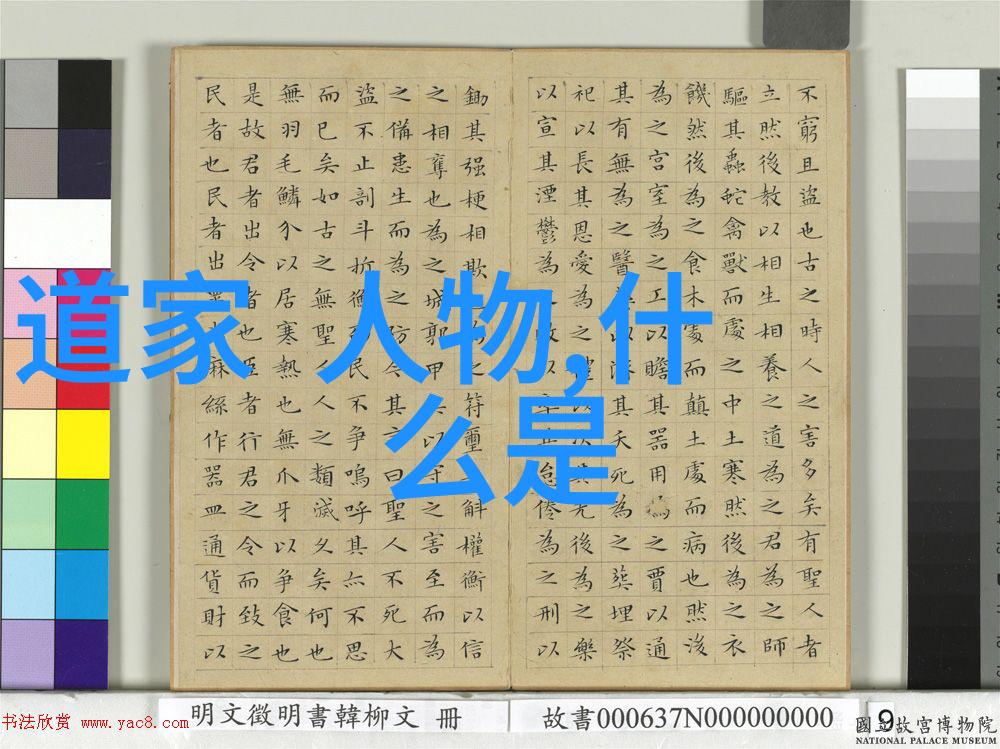 不窮且盜也古之時人之害多矣有聖人者
立然後教以相生相養之道為之君為之師
驅其蟲蛇禽獸而處之中土寒然後為之衣
饑然後為之食木處而顛土處而病也然後
為之宮室為之工以贍其器用為之賈以通
其有無為之醫以濟其夭死為之葬埋祭
祀以長其恩愛為之禮以次其先後為之樂
以宣其湮鬱為政以怠為之刑以
鋤其强梗相欺為之符璽斛權衡以信
之相奪也為之城郭甲兵以守之害至而為
之備患生而為之防今其言曰聖人不死大
盜不止剖斗折衡而民不爭嗚呼其亦不思
而已矣如古之無聖人人之類滅久矣何也
無羽毛鱗介以居寒熱也無爪牙以爭食也
是故君者出令者也臣者行君之令而致之
民者也民者出粟米麻絲作器皿通貨財以
道家 人物,什
么是
明文徵明書韓柳文 冊
故書000637N000000000
9
國立故宮博物院
NATIONAL PALACE MUSEUM
书法欣赏 www.yac8.com